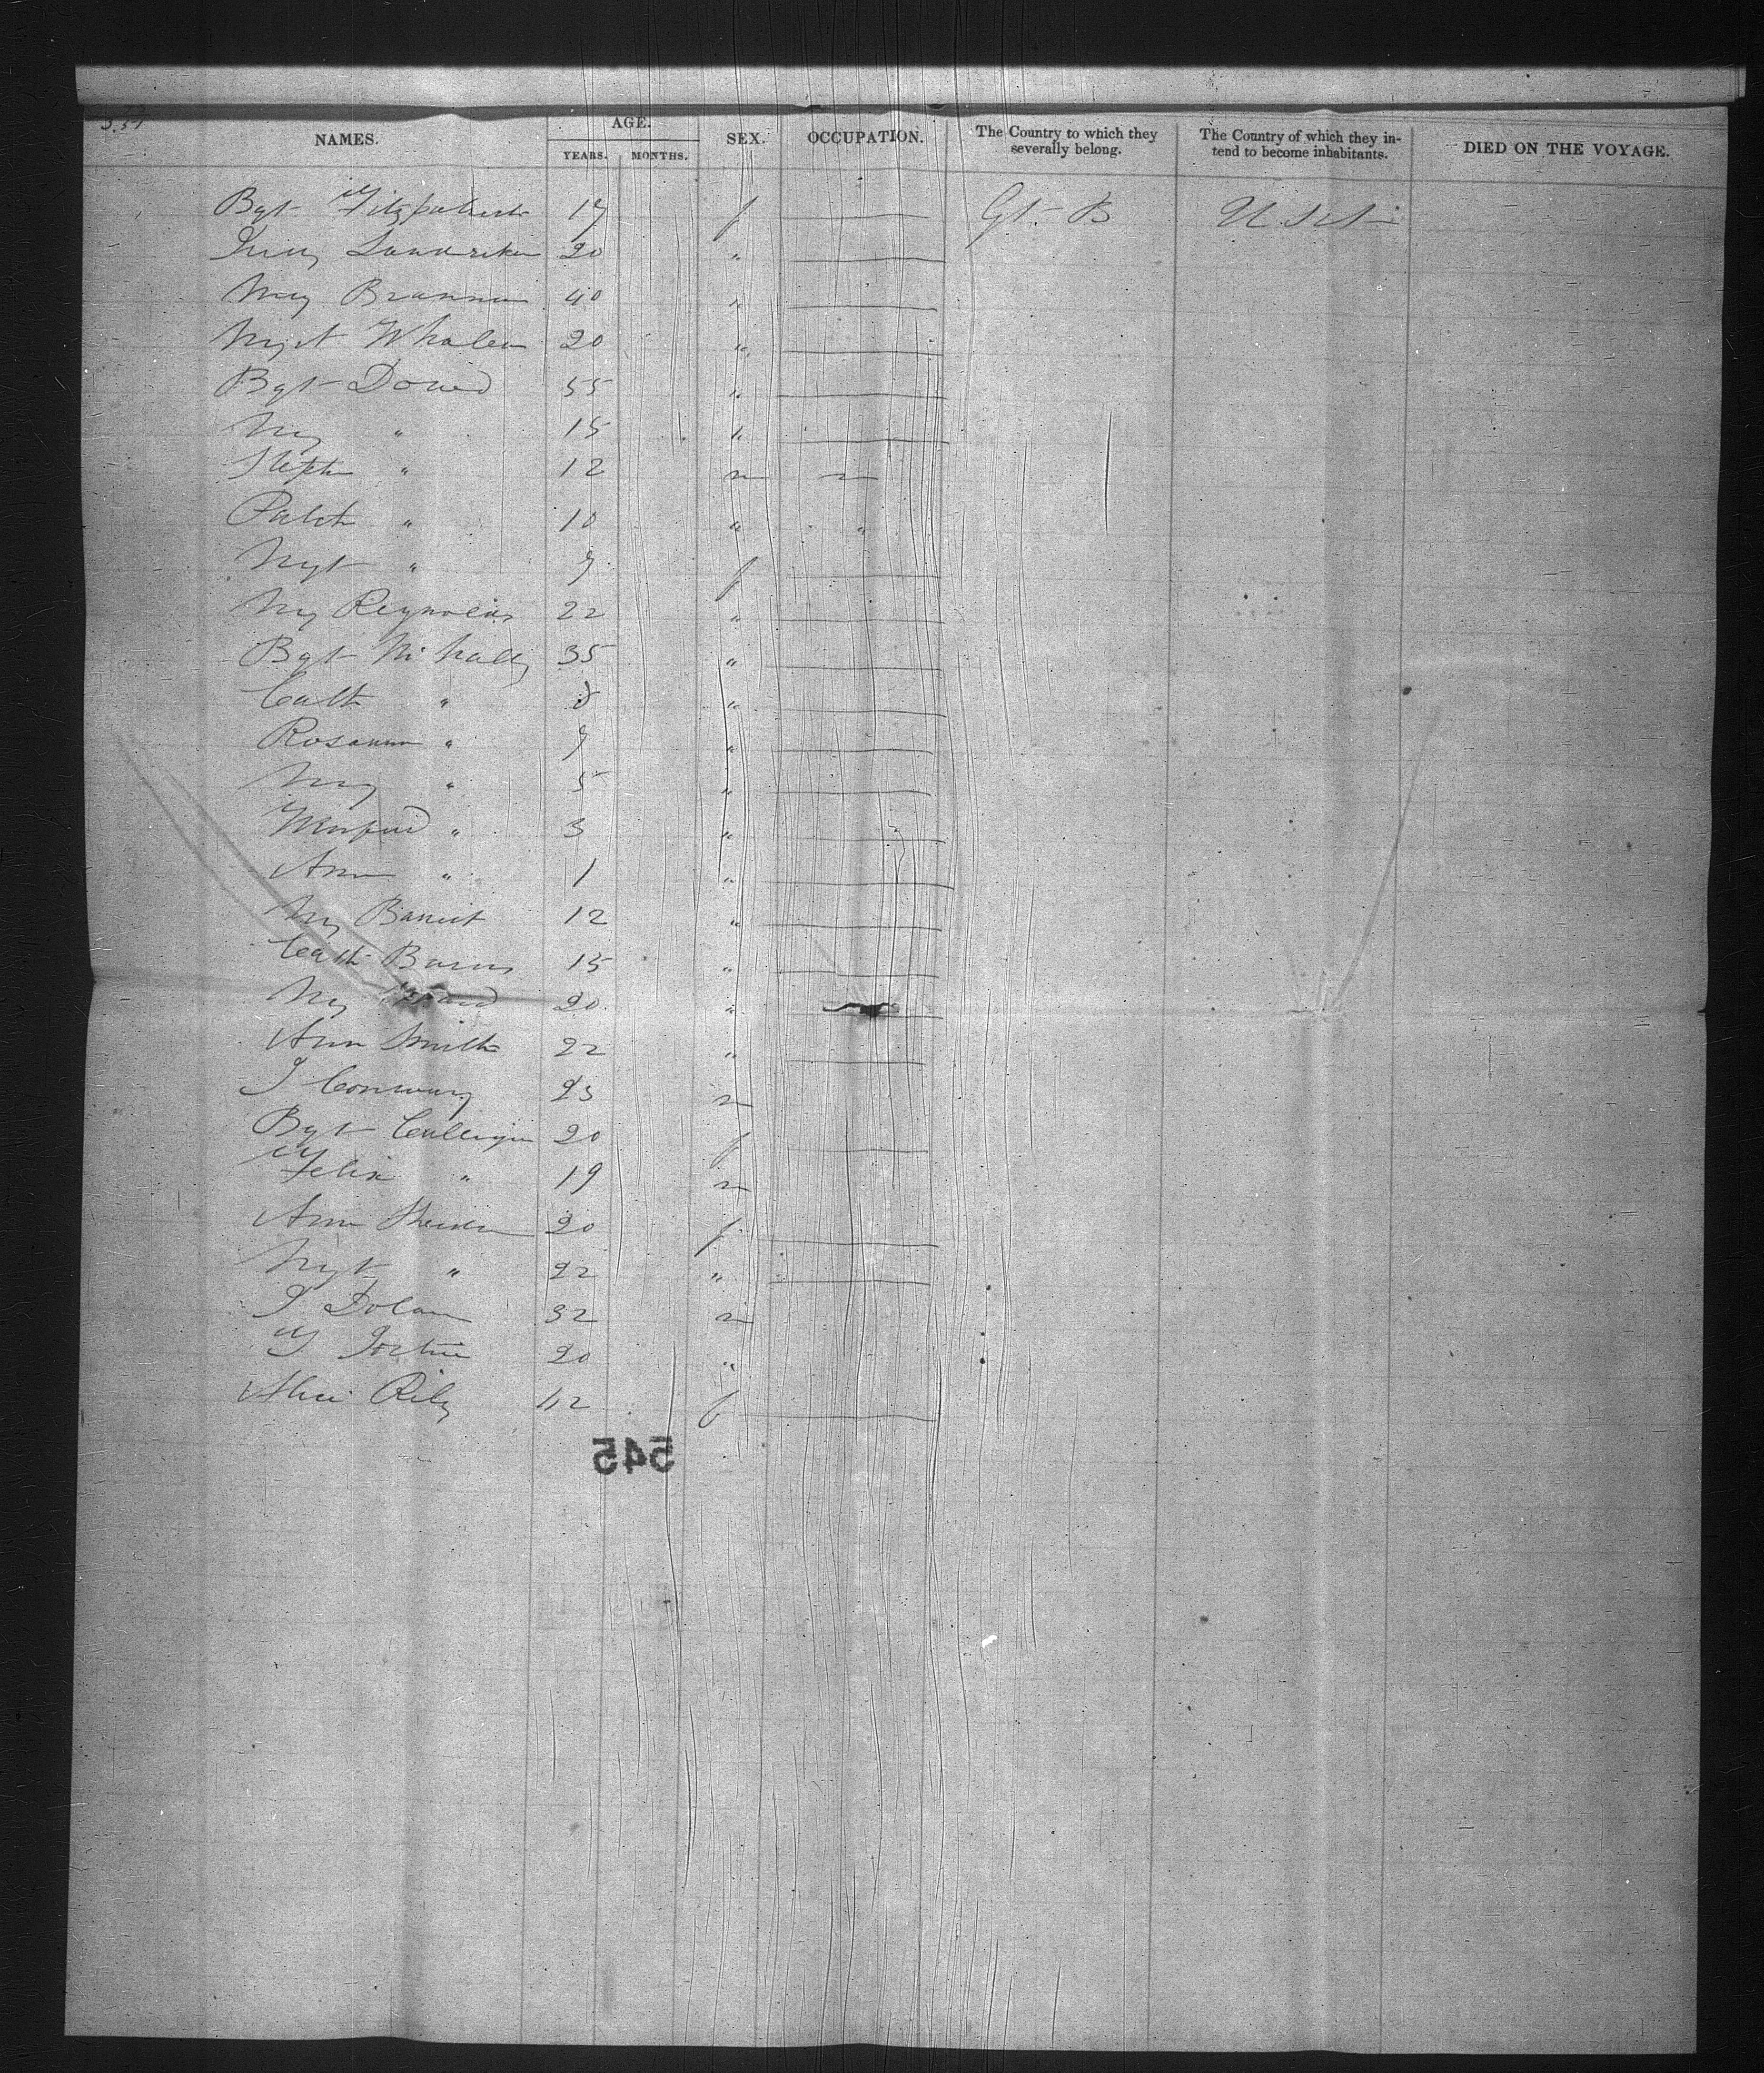 NAMES. AGE. YEARS. MONTHS. SEX. OCCUPATION. The Country to which they severally belong. The Country of which they intend to become inhabitants. DIED ON THE VOYAGE.
Bgt Fitzpatrick 17 f Gt. B U St
20 "
My Brannan 40 "
Mgt Whalen 20 "
Bgt Dowd 55 "
My " 15 "
Steph " 12 m
Patck " 10 " "
Mgt " 9 f
My Reynolds 22 "
Bgt McNally 35 "
Cath " 8 "
Rosanna " 7 "
My " 5 "
Winfred " 3 "
Ann " 1 "
My 12 "
Cath Burns 15 "
My 20 "
Ann Smith 22 "
J Conway 23 m
Bgt 20 f
Felix " 19 m
Ann 20 f
Mgt " 22 "
J Dolan 32 m
20 "
Alice Rily 42 f
545